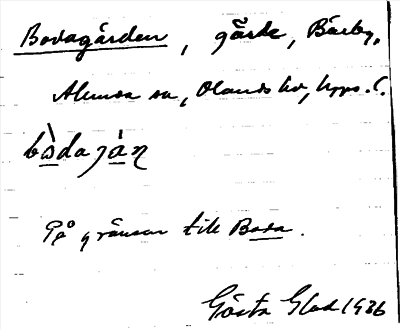 Bovagärden, gärde, Bärby,
Alunda sn, Olands hd, Upps. l.
På gränsen till Bova.
Gösta Glad 1936